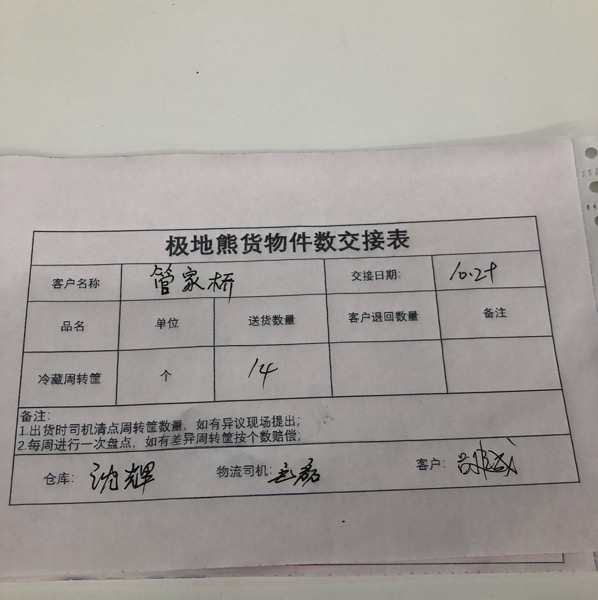 极地熊货物件数交接表
客户名称 管家桥 交接日期:
品名 单位 送货数量 客户退回数量 备注
冷藏周转筐 个 14
备注:
1.出货时司机清点周转筐数量，如有异议现场提出;
2.每周进行一次盘点，如有差异周转筐按个数赔偿;
仓库: 沈辉 物流司机: 客户: